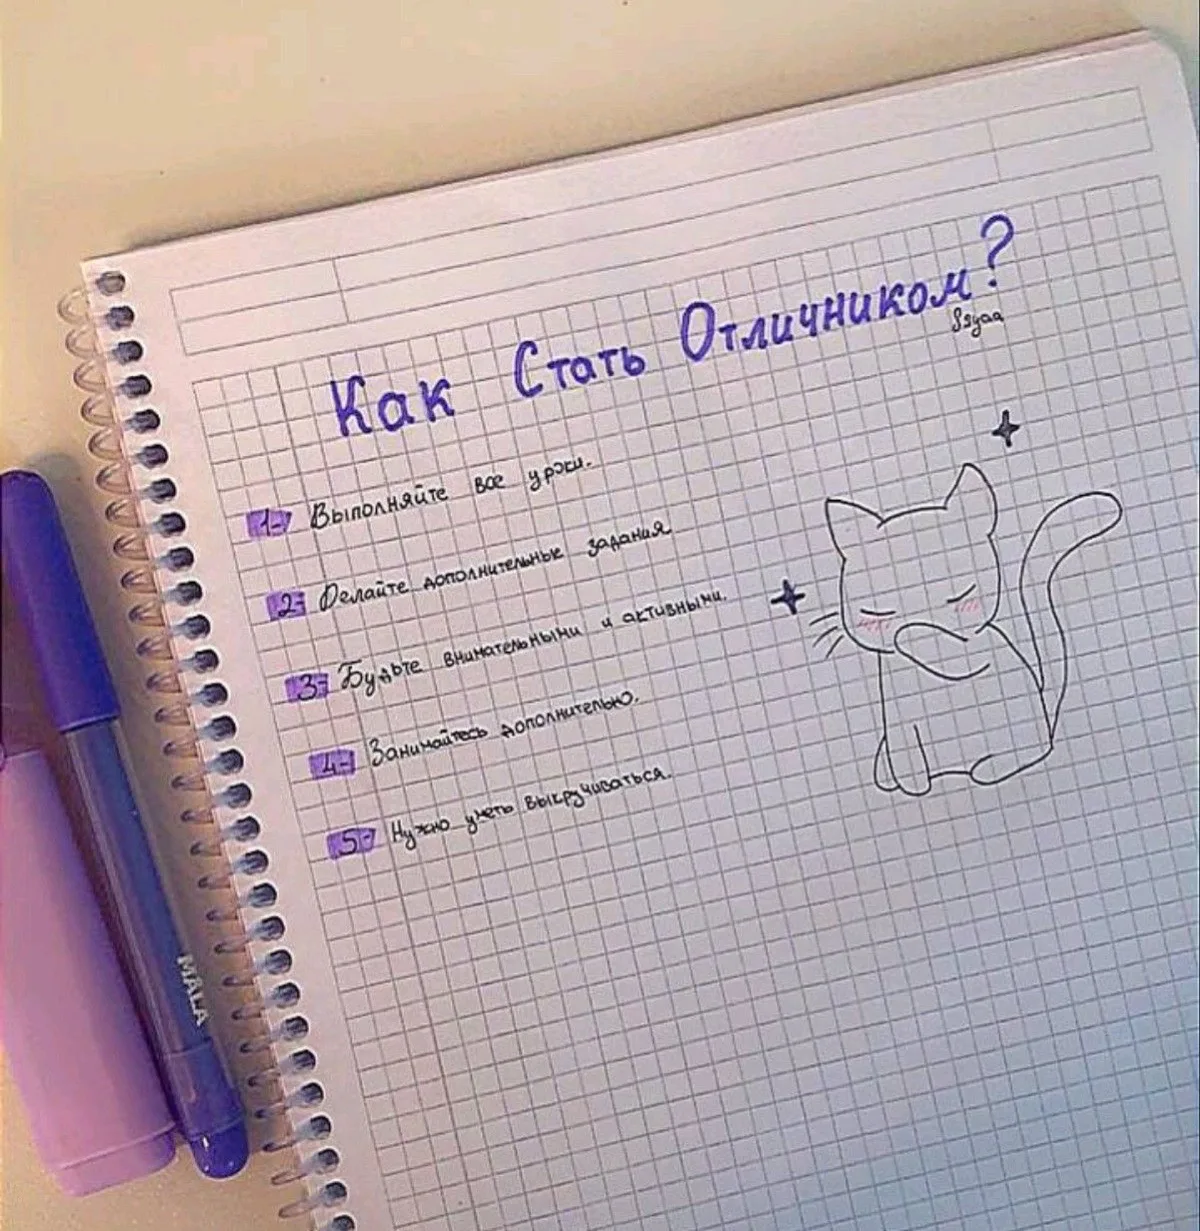 Как Стать Отличником?
Ssyaa
1- Выполняйте все уроки.
2- Делайте дополнительные задания
3- Будьте внимательными и активными.
4- Занимайтесь дополнительно.
5- Нужно уметь выкручиваться.
MALA